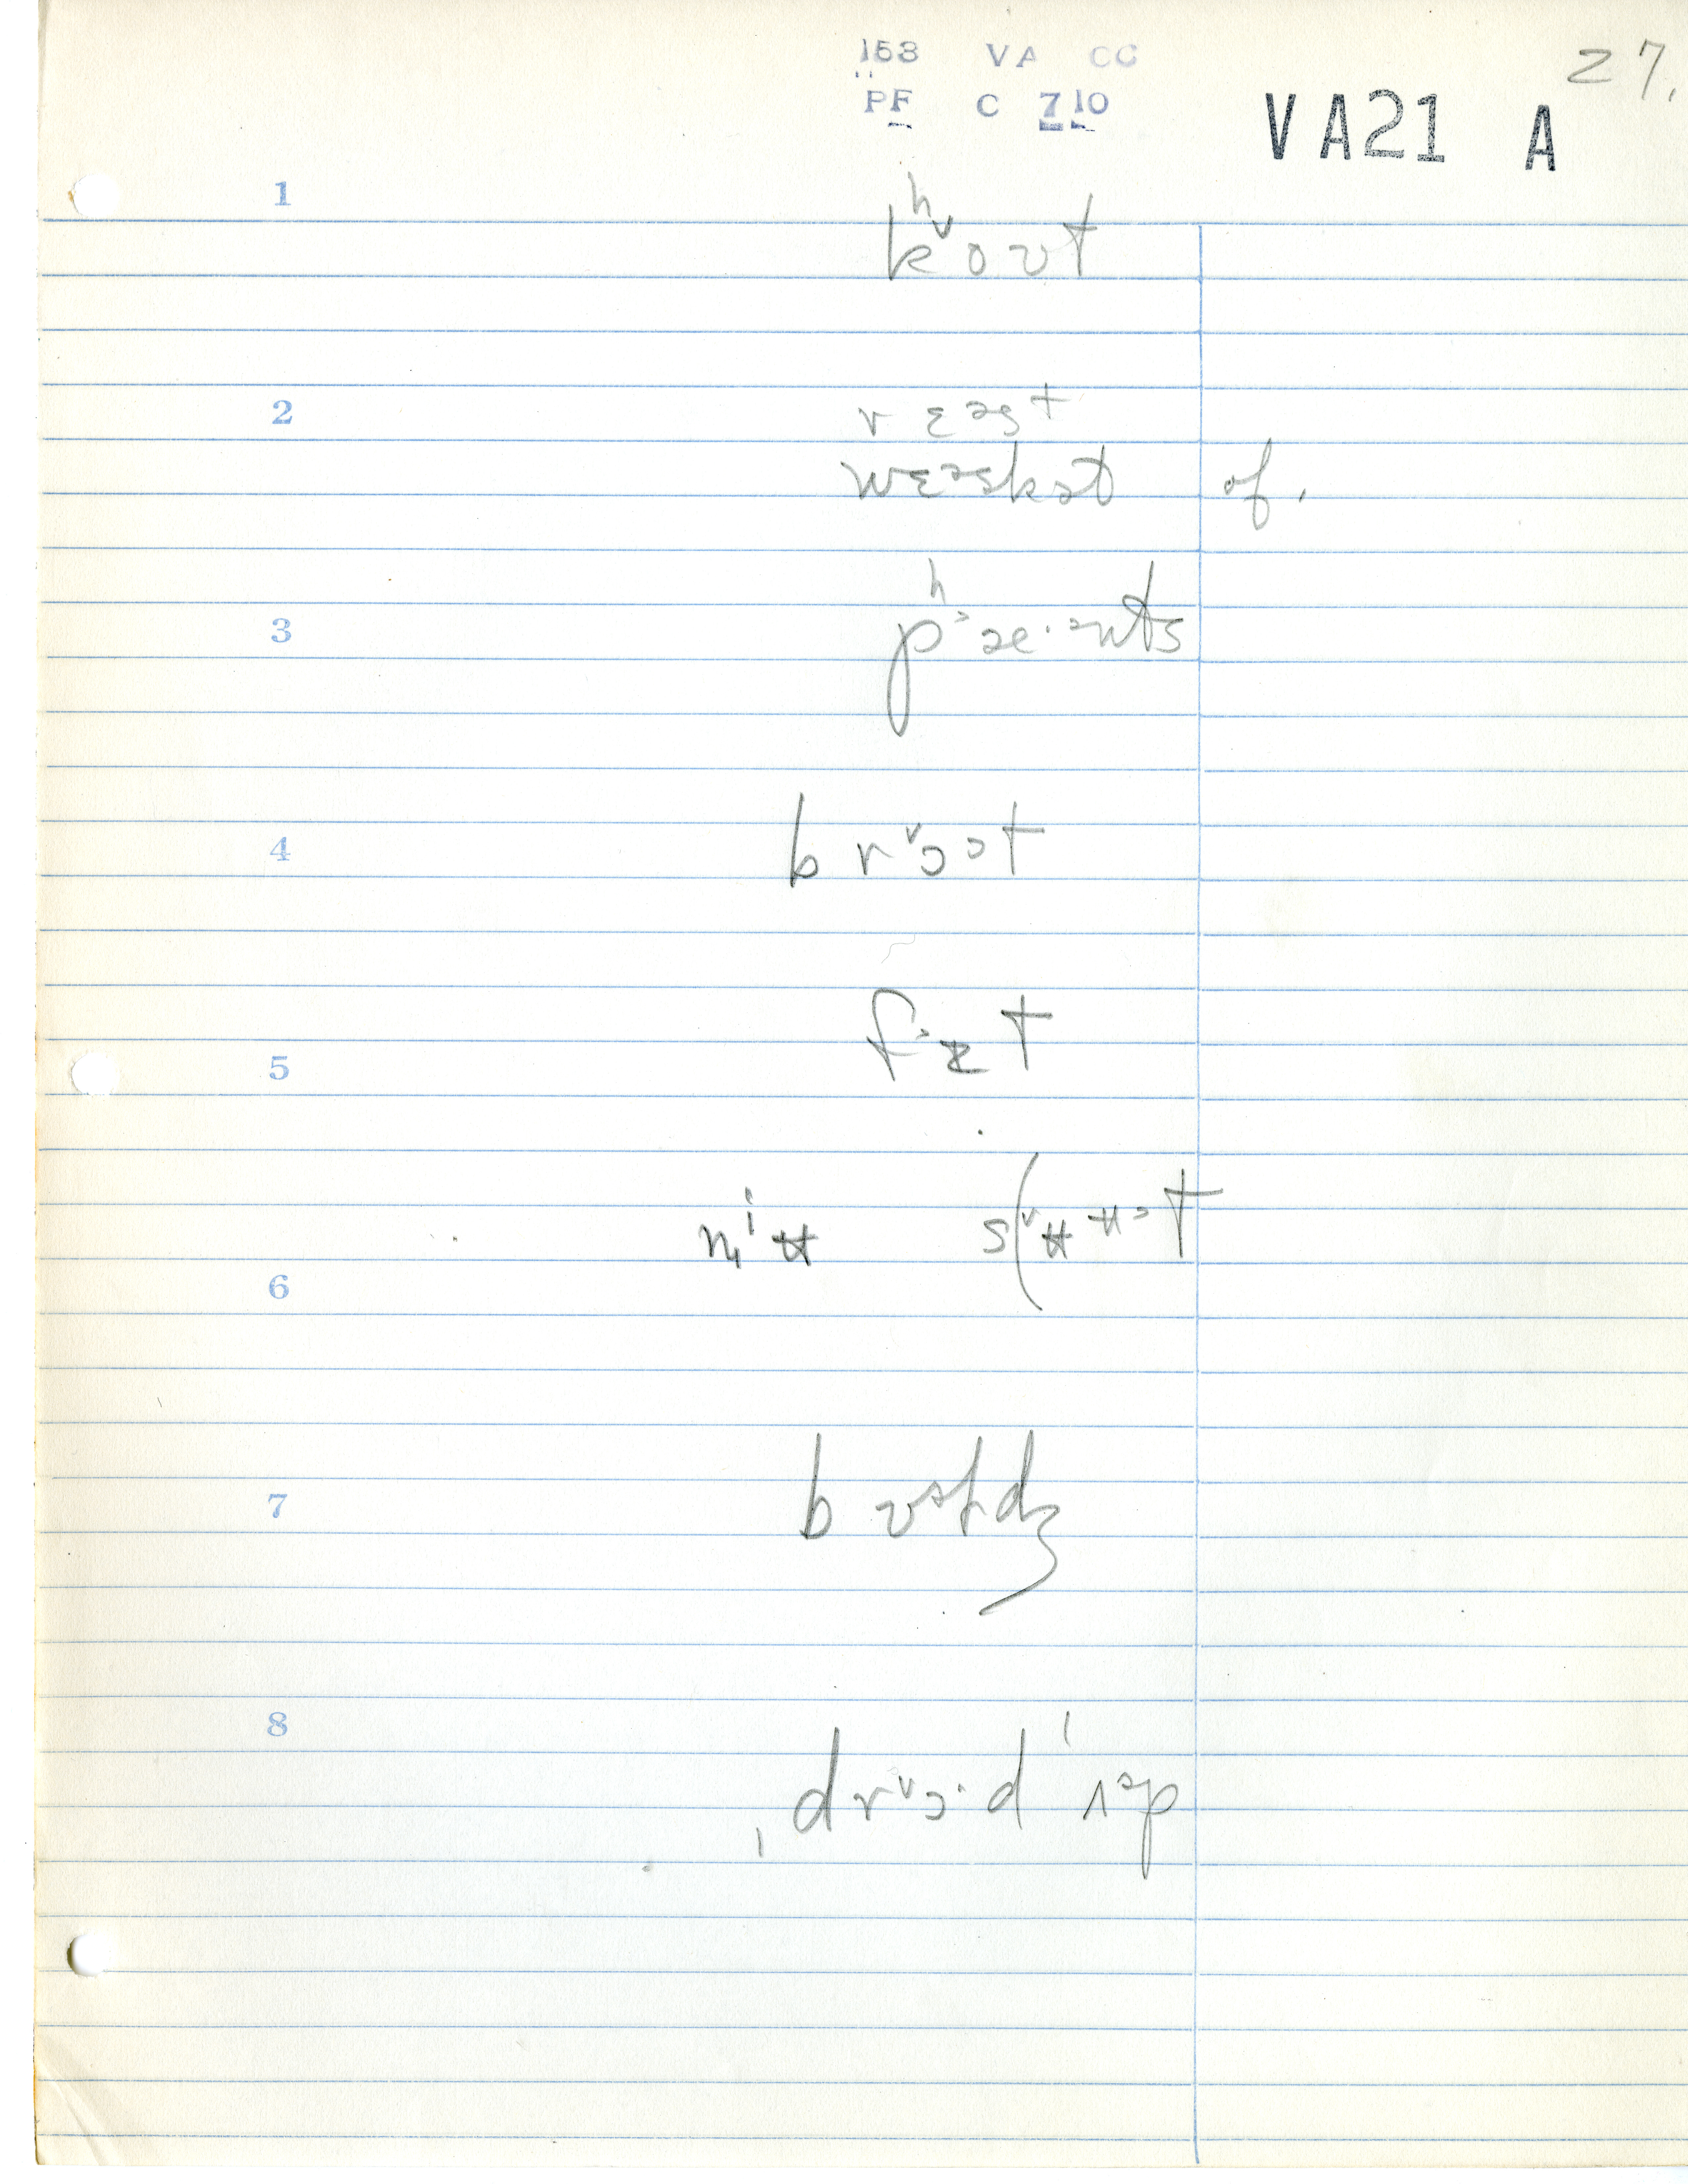 153 VA CC
PF C 7 10
VA21 A
27.
1
kʰ˅oʊt
2
vɛəst
wɛəskət of.
3
pʰ˃æ·ənts
4
br˅ɔət
5
f˃ɪt
6
n
7
bʊəɫdʒ
8
ˌdr˅ɔ·dˈʌəp